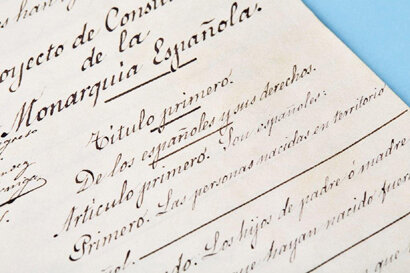 han
oyecto de Constitu
de la
Monarquía Española.
Título primero.
De los españoles y sus derechos.
Artículo primero. Son españoles:
Primero. Las personas nacidas en territorio
ndo. Los hijos de padre ó madre
que hayan nacido fuera
que